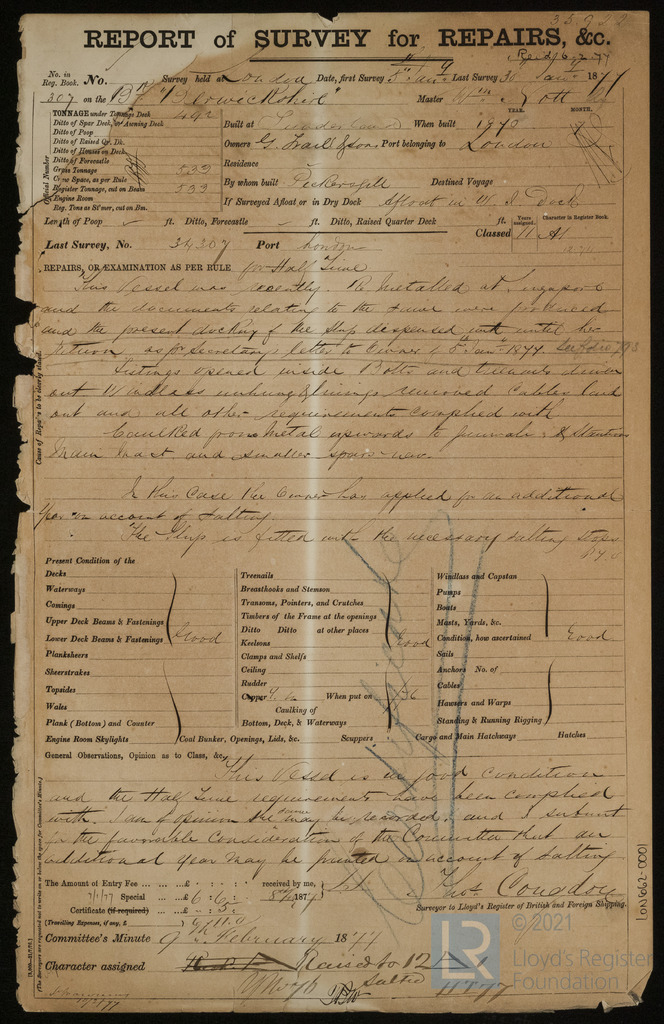 35922
REPORT of SURVEY for REPAIRS, &c.
No. in Reg. Book. No. Survey held at London Date, first Survey 5th Jany Last Survey 30 Jany 1877
307 on the "Berwickshire" Master Wm
TONNAGE under Tonnage Deck 492
Ditto of Spar Deck, or Awning Deck
Ditto of Poop
Ditto of Raised Qr. Dk.
Ditto of Houses on Deck
Ditto of Forecastle
Gross Tonnage 533
Crew Space, as per Rule
Register Tonnage, cut on Beam 533
Engine Room
Reg. Tons as St'mer, cut on Bm.
Official Number
YEAR. MONTH.
Built at Sunderland When built
Owners G. Traill & Sons Port belonging to London
Residence
By whom built Pickersgill Destined Voyage
If Surveyed Afloat or in Dry Dock Afloat in W. I. Dock
Length of Poop ft. Ditto, Forecastle ft. Ditto, Raised Quarter Deck ft.
Years assigned. Character in Register Book.
Classed 11 A1
Last Survey, No. 34207 Port London
REPAIRS, OR EXAMINATION AS PER RULE for Half Time
This Vessel was recently Remetalled at Singapore
and the documents relating to the same were produced
and the present docking of the Ship dispensed with until her
return as per Secretarys letter to Owner of 5th Jany 1877
Listings opened inside Bolts and treenails driven
out Windlass unhung & linings removed Cables laid
out and all other requirements complied with
Caulked from Metal upwards to gunwale & Stantions
Main Mast and smaller spars new
In this Case the Owner has applied for an additional
Year on account of Salting
The Ship is fitted with the necessary salting stops
Cause of Repairs to be clearly stated.
Present Condition of the
Decks
Waterways
Comings
Upper Deck Beams & Fastenings
Lower Deck Beams & Fastenings Good
Planksheers
Sheerstrakes
Topsides
Wales
Plank (Bottom) and Counter
Engine Room Skylights
Treenails
Breasthooks and Stemson
Transoms, Pointers, and Crutches
Timbers of the Frame at the openings
Ditto Ditto at other places
Keelsons Good
Clamps and Shelfs
Ceiling
Rudder
Copper When put on
Caulking of
Bottom, Deck, & Waterways
Coal Bunker, Openings, Lids, &c. Scuppers
Windlass and Capstan
Pumps
Boats
Masts, Yards, &c.
Condition, how ascertained Good
Sails
Anchors No. of
Cables
Hawsers and Warps
Standing & Running Rigging
Cargo and Main Hatchways Hatches
General Observations, Opinion as to Class, &c.
This Vessel is in good condition
and the Half Time requirements have been complied
with. I am of opinion the same may be recorded, and I submit
for the favorable consideration of the Committee that an
additional year may be granted on account of salting
The Amount of Entry Fee ... ... £ : : received by me,
7/1/77 Special ... ... £ 6 : 6 : 187
Certificate (if required) ... £ : 5 :
(Travelling Expenses, if any, £ )
Thos Congdon
Surveyor to Lloyd's Register of British and Foreign Shipping.
Committee's Minute 9th February 1877
Character assigned Raised to 12
Salted
LON662-0001
© 2021
LR
Lloyd's Register
Foundation